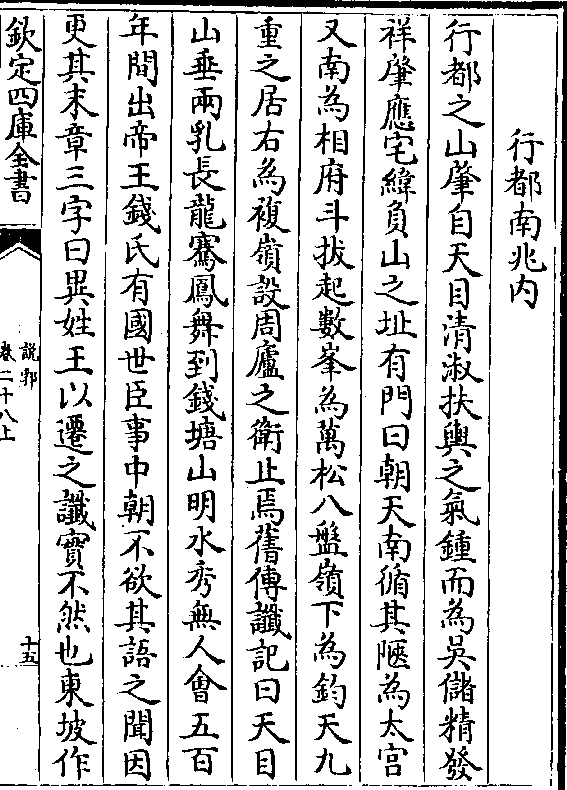 行都南兆内
行都之山肇自天目清淑扶輿之氣鍾而為吳儲精發
祥肇應宅緯負山之址有門曰朝天南循其陿為太宫
又南為相府斗拔起數峯為萬松八盤嶺下為鈞天九
重之居右為複嶺設周廬之衛止焉舊傳讖記曰天目
山垂兩乳長龍騫鳳舞到錢塘山明水秀無人會五百
年間出帝王錢氏有國世臣事中朝不欲其語之聞因
更其末章三字曰異姓王以遷之讖實不然也東坡作
欽定四庫全書
說郛
卷二十八上
十五